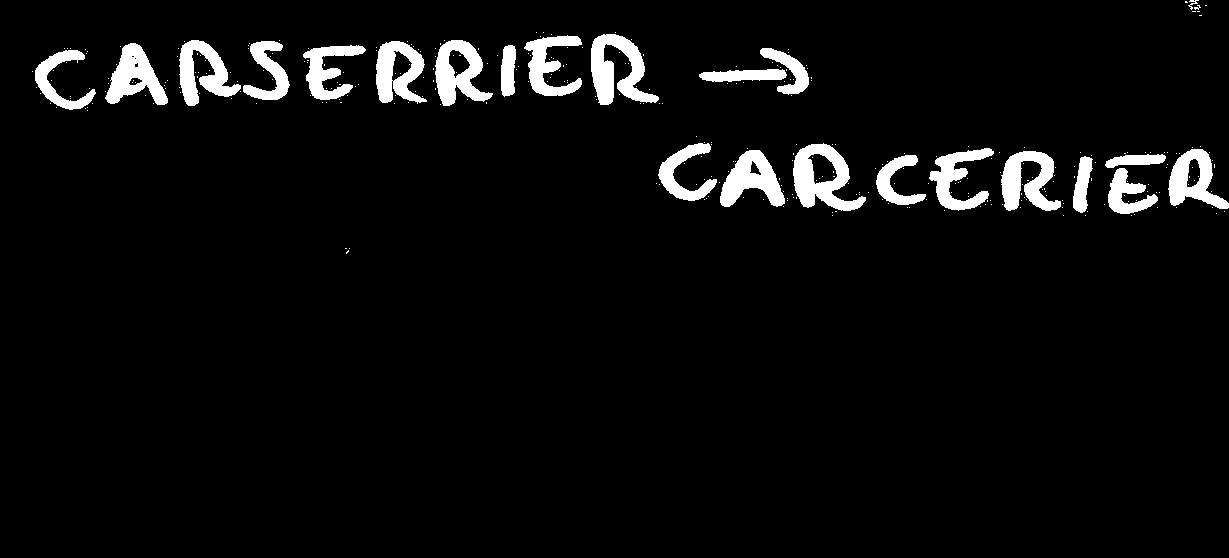 CARSERRIER →
CARCERIER